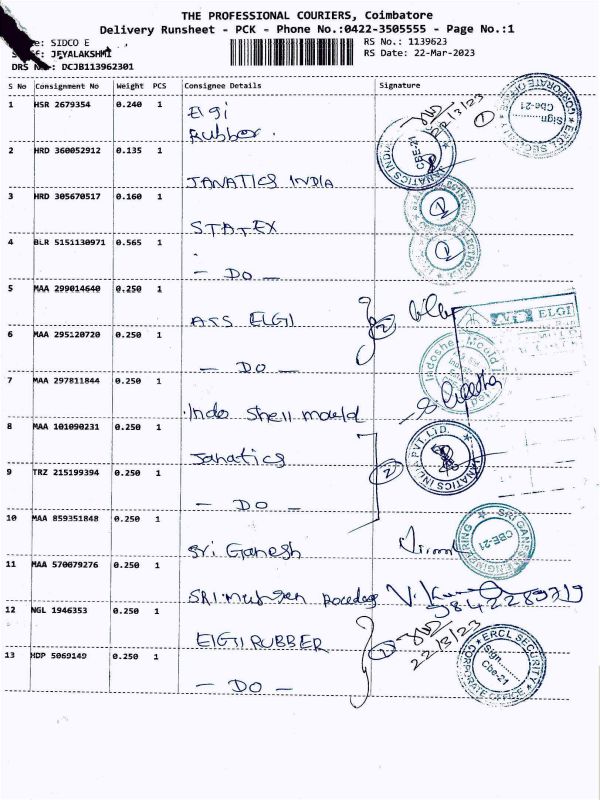 THE PROFESSIONAL COURIERS, Coimbatore
Delivery Runsheet - PCK - Phone No.:0422-3505555 - Page No.:1
: SIDCO E
RS No.: 1139623
: JEYALAKSHMI
RS Date: 22-Mar-2023
DRS No.: DCJB113962301
S No Consignment No Weight PCS Consignee Details Signature
1 HSR 2679354 0.240 1 Elgi
Rubber.
22/3/23 1
CORPORATE OFFICE ERCL SECURITY Sign. Cbe-21
2 HRD 360052912 0.135 1 JANATICS INDIA
JANATICS INDIA CBE-21
3 HRD 305670517 0.160 1 STATEX
4 BLR 5151130971 0.565 1 - DO -
5 MAA 299014640 0.250 1 ASS ELGI
2
ELGI
6 MAA 295120720 0.250 1 - DO -
Indoshell Mould
7 MAA 297811844 0.250 1 Indo Shell mould
8 MAA 101090231 0.250 1 Janatics
JANATICS INDIA PVT. LTD.
2
9 TRZ 215199394 0.250 1 - DO -
10 MAA 859351848 0.250 1 Sri Ganesh
SRI GANESH ENGINEERING CBE-21
11 MAA 570079276 0.250 1 SRI
9842289719
12 NGL 1946353 0.250 1 ElGI RUBBER
22/3/23
ERCL SECURITY Sign. Cbe-21 CORPORATE OFFICE
13 HDP 5069149 0.250 1 - DO -